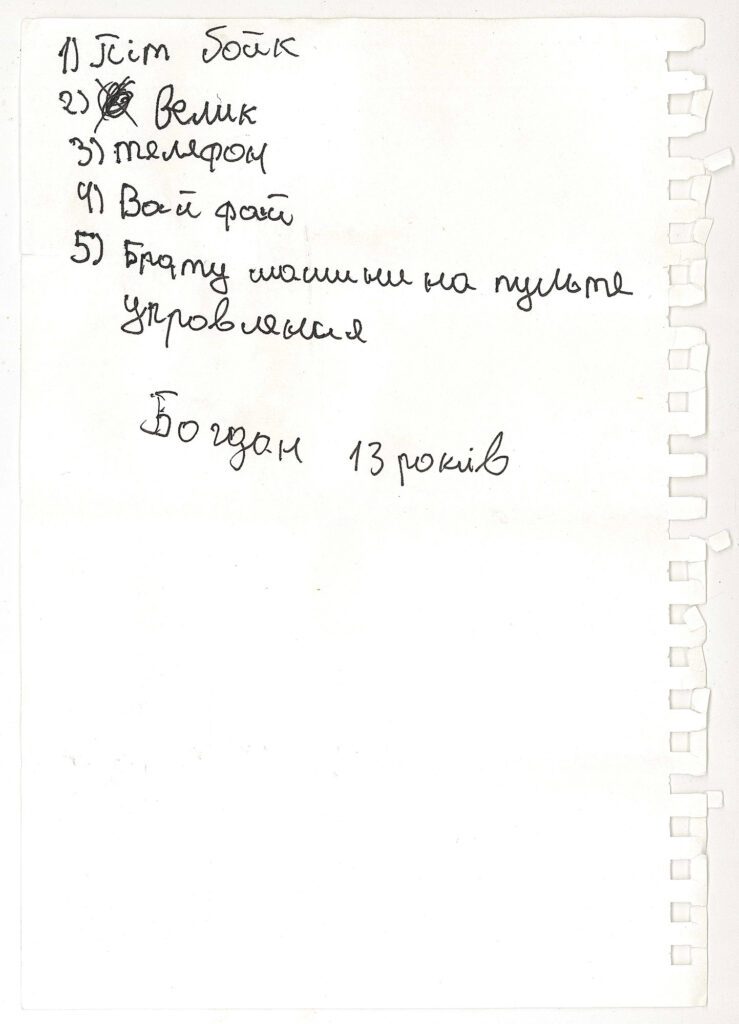 1) Піт бойк
2) велик
3) телефон
4) Вай фай
5) Брату машини на пульте
управления
Богдан 13 років